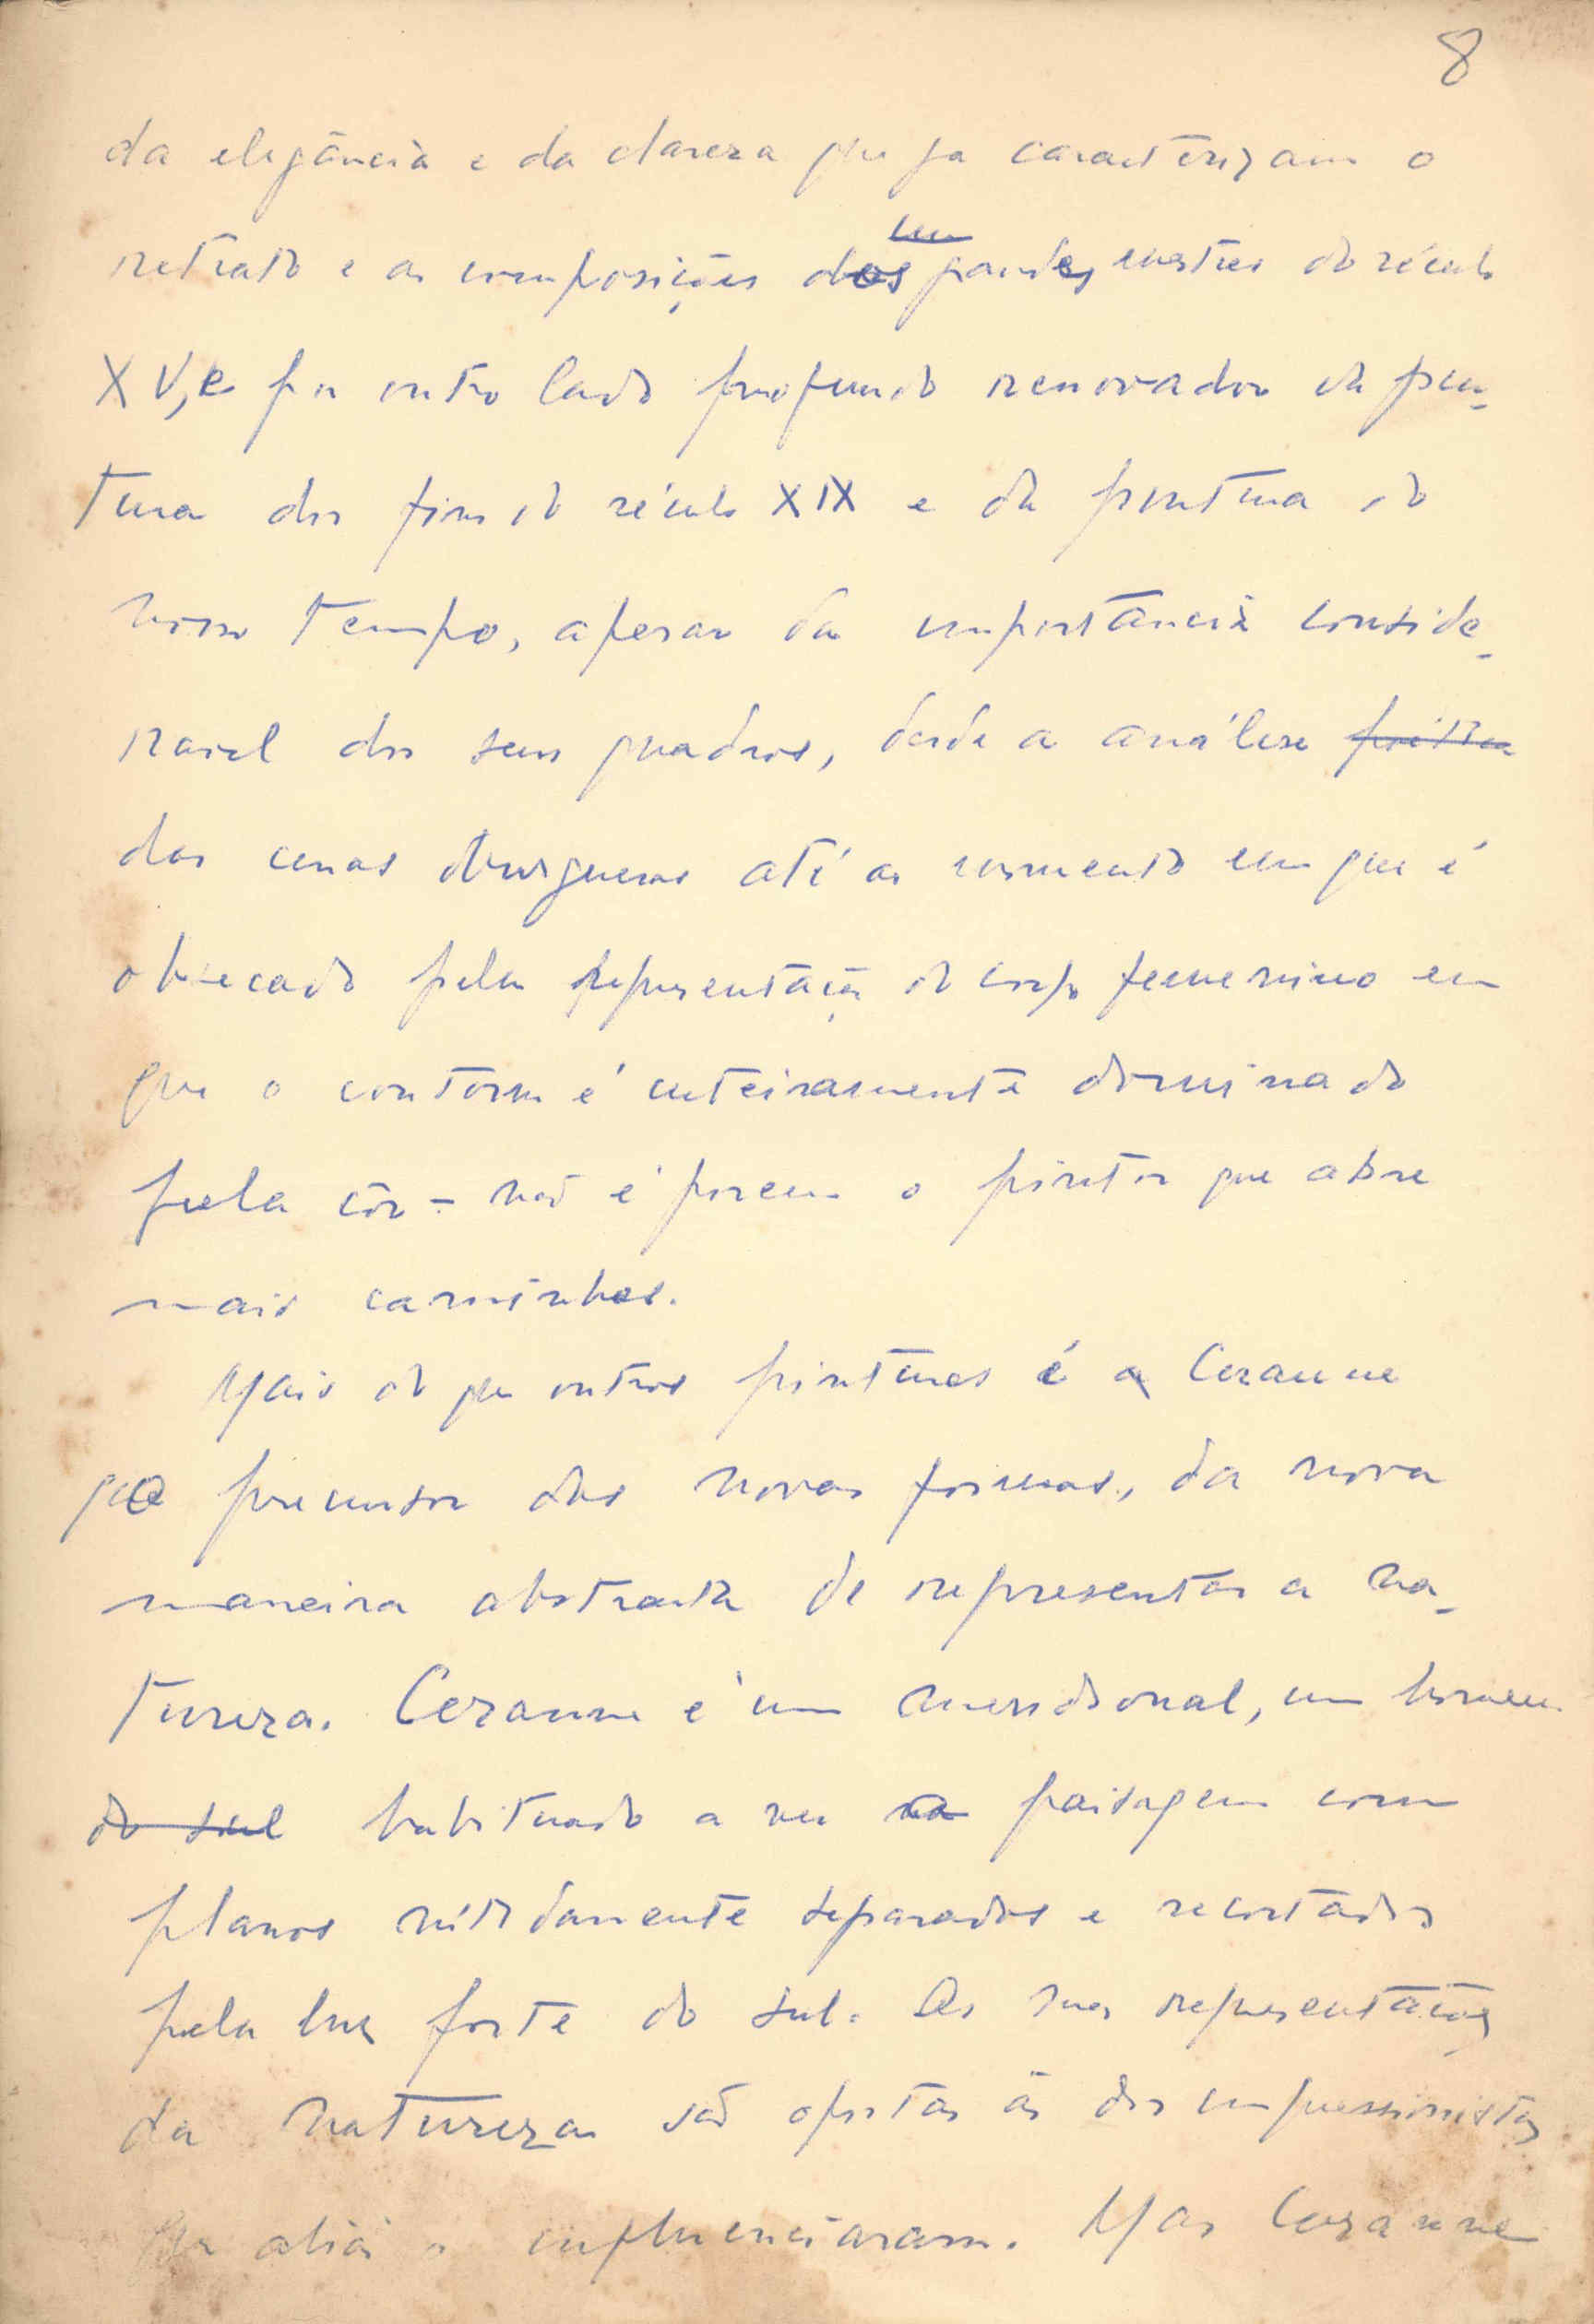 8
da elegância e da clareza que ja caracterizam o
retrato e as composições dos grandes mestres do século
XV, e por outro lado profundo renovador da pin-
tura dos fins do século XIX e da pintura do
nosso tempo, apesar da importância conside-
ravel dos seus quadros, desde a análise
das cenas burguesas até ao momento em que é
obsecado pela representação do corpo feminino em
que o contorno é inteiramente dominado
pela côr - não é porem o pintor que abre
mais caminhos.
Mais do que outros pintores é a Cezanne
precursor das novas formas, da nova
maneira abstracta de representar a na-
tureza. Cezanne é um meridional, um homem
do sul habituado a ver na paisagem com
planos nitidamente separados e recortados
pela luz forte do sul. As suas representações
da natureza são opostas ás dos impressionistas
que aliás o influenciaram. Mas Cezanne